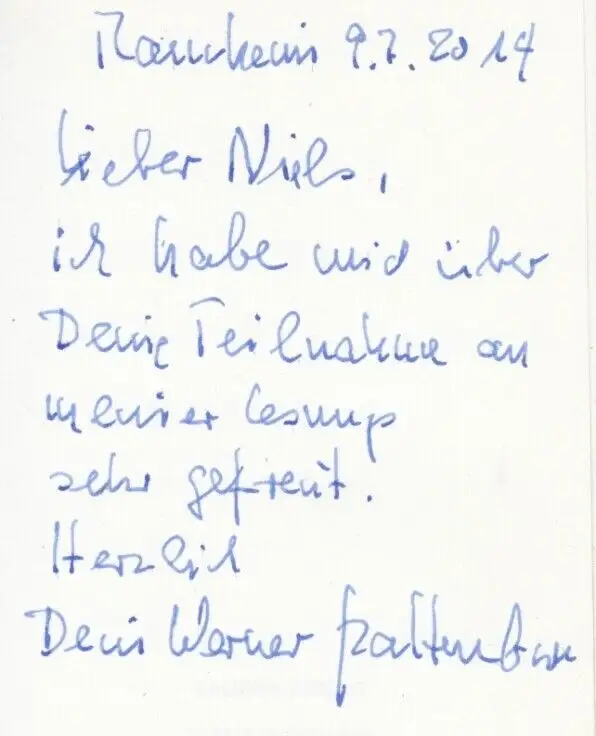 Raunheim 9.7.2014
Lieber Niels,
ich habe mich über
Deine Teilnahme an
meiner Lesung
sehr gefreut.
Herzlich
Dein Werner